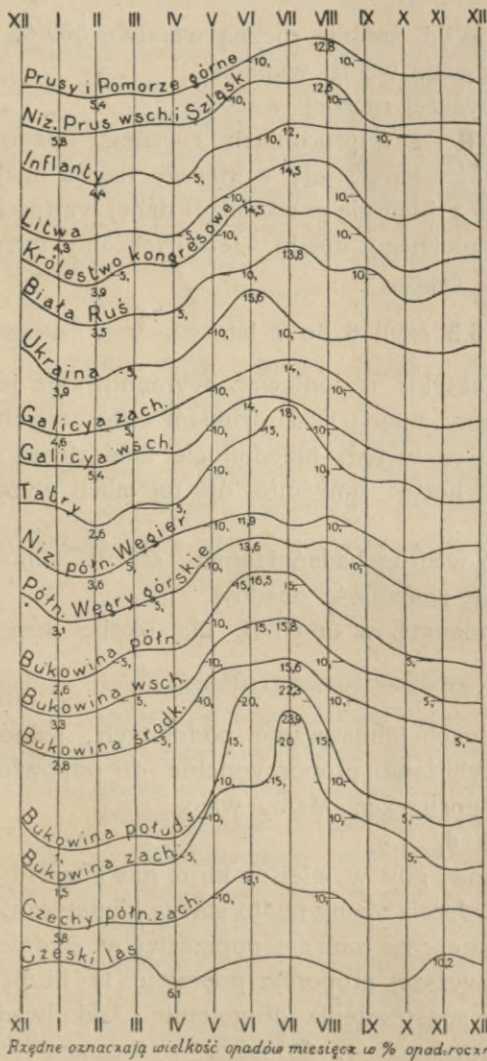 XII I II III IV V VI VII VIII IX X XI XII
Prusy i Pomorze górne
5,4 10, 12,8 10,
Niz. Prus wsch. i Szląsk
5,8 10, 12,5 10,
Inflanty
4,4 5, 10, 12, 10,
Litwa
4,3 5, 10, 14,5 10,
Królestwo kongresowe
3,9 5, 10, 14,5 10,
Biała Ruś
3,5 5, 10, 13,8 10,
Ukraina
3,9 5, 10, 15,6 10,
Galicya zach.
4,6 5, 10, 14, 10,
Galicya wsch.
5,4 10, 14, 10,
Tatry
2,6 5, 10, 15, 18, 10,
Niz. półn. Węgier
3,6 5, 10, 11,9 10,
Półn. Węgry górskie
3,1 5, 10, 13,6 10,
Bukowina półn.
2,6 5, 10, 15, 16,5 15, 10, 5,
Bukowina wsch.
3,3 5, 10, 15, 15,8 10, 5,
Bukowina środk.
2,8 5, 10, 15,6 10, 5,
Bukowina połud.
5, 10, 15, 20, 22,3 15, 10, 5,
Bukowina zach.
1,5 5, 10, 15, 20 23,9 10, 5,
Czechy półn. zach.
5,8 10, 13,1 10,
Czeski las
6,1 10,2
XII I II III IV V VI VII VIII IX X XI XII
Rzędne oznaczają wielkość opadów miesięcz. w % opad. roczn